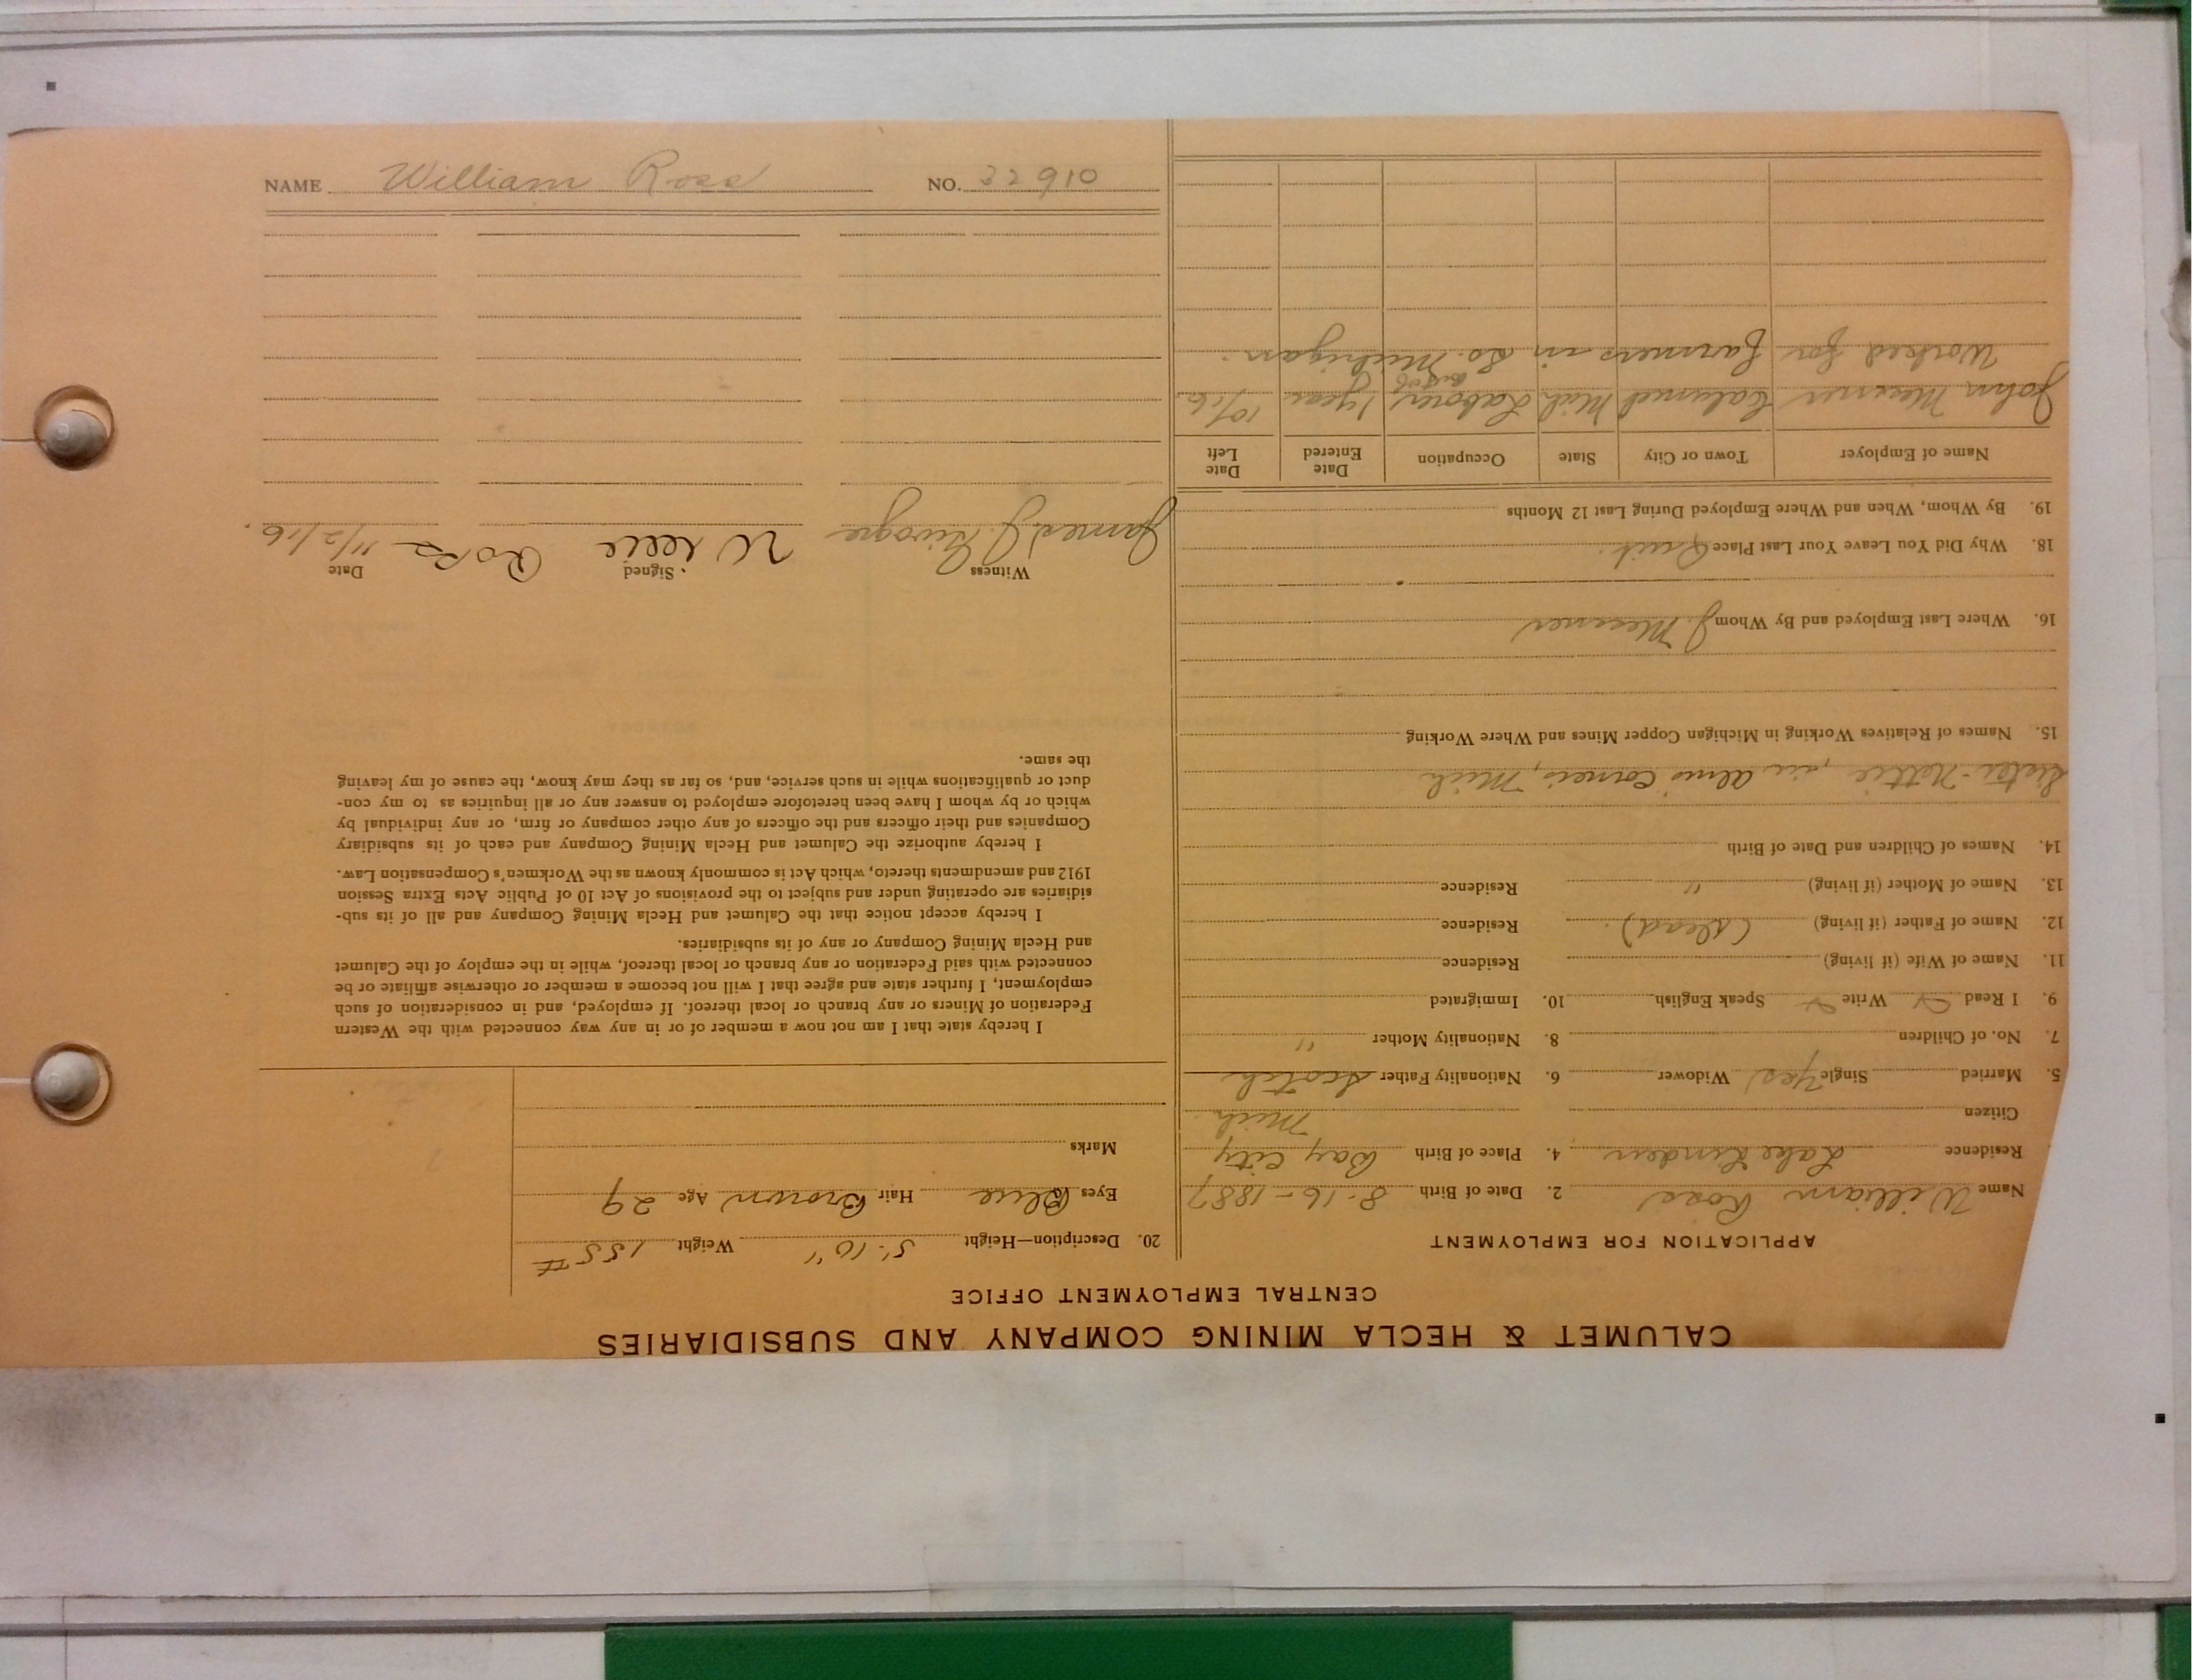 CALUMET & HECLA MINING COMPANY AND SUBSIDIARIES
CENTRAL EMPLOYMENT OFFICE
APPLICATION FOR EMPLOYMENT
Name William Ross 2. Date of Birth 8-16-1887
Residence Lake Linden 4. Place of Birth Bay City
Citizen Mich.
5. Married Single Yes Widower 6. Nationality Father Scotch
7. No. of Children 8. Nationality Mother "
9. I Read Write Speak English 10. Immigrated
11. Name of Wife (if living) Residence
12. Name of Father (if living) (dead). Residence
13. Name of Mother (if living) " Residence
14. Names of Children and Date of Birth
Sister-Nettie, Mich
15. Names of Relatives Working in Michigan Copper Mines and Where Working
16. Where Last Employed and By Whom J.
18. Why Did You Leave Your Last Place Quit.
19. By Whom, When and Where Employed During Last 12 Months
Name of Employer Town or City State Occupation Date Entered Date Left
John Calumet Mich Laborer 1 year 10/16
Worked for farmers in So. Michigan.
20. Description—Height 5'-10" Weight 155#
Eyes Blue Hair Brown Age 29
Marks
I hereby state that I am not now a member of or in any way connected with the Western
Federation of Miners or any branch or local thereof. If employed, and in consideration of such
employment, I further state and agree that I will not become a member or otherwise affiliate or be
connected with said Federation or any branch or local thereof, while in the employ of the Calumet
and Hecla Mining Company or any of its subsidiaries.
I hereby accept notice that the Calumet and Hecla Mining Company and all of its sub-
sidiaries are operating under and subject to the provisions of Act 10 of Public Acts Extra Session
1912 and amendments thereto, which Act is commonly known as the Workmen's Compensation Law.
I hereby authorize the Calumet and Hecla Mining Company and each of its subsidiary
Companies and their officers and the officers of any other company or firm, or any individual by
which or by whom I have been heretofore employed to answer any or all inquiries as to my con-
duct or qualifications while in such service, and, so far as they may know, the cause of my leaving
the same.
Witness Signed Date
James J. Wille Ross 11/2/16.
NAME William Ross NO. 32910